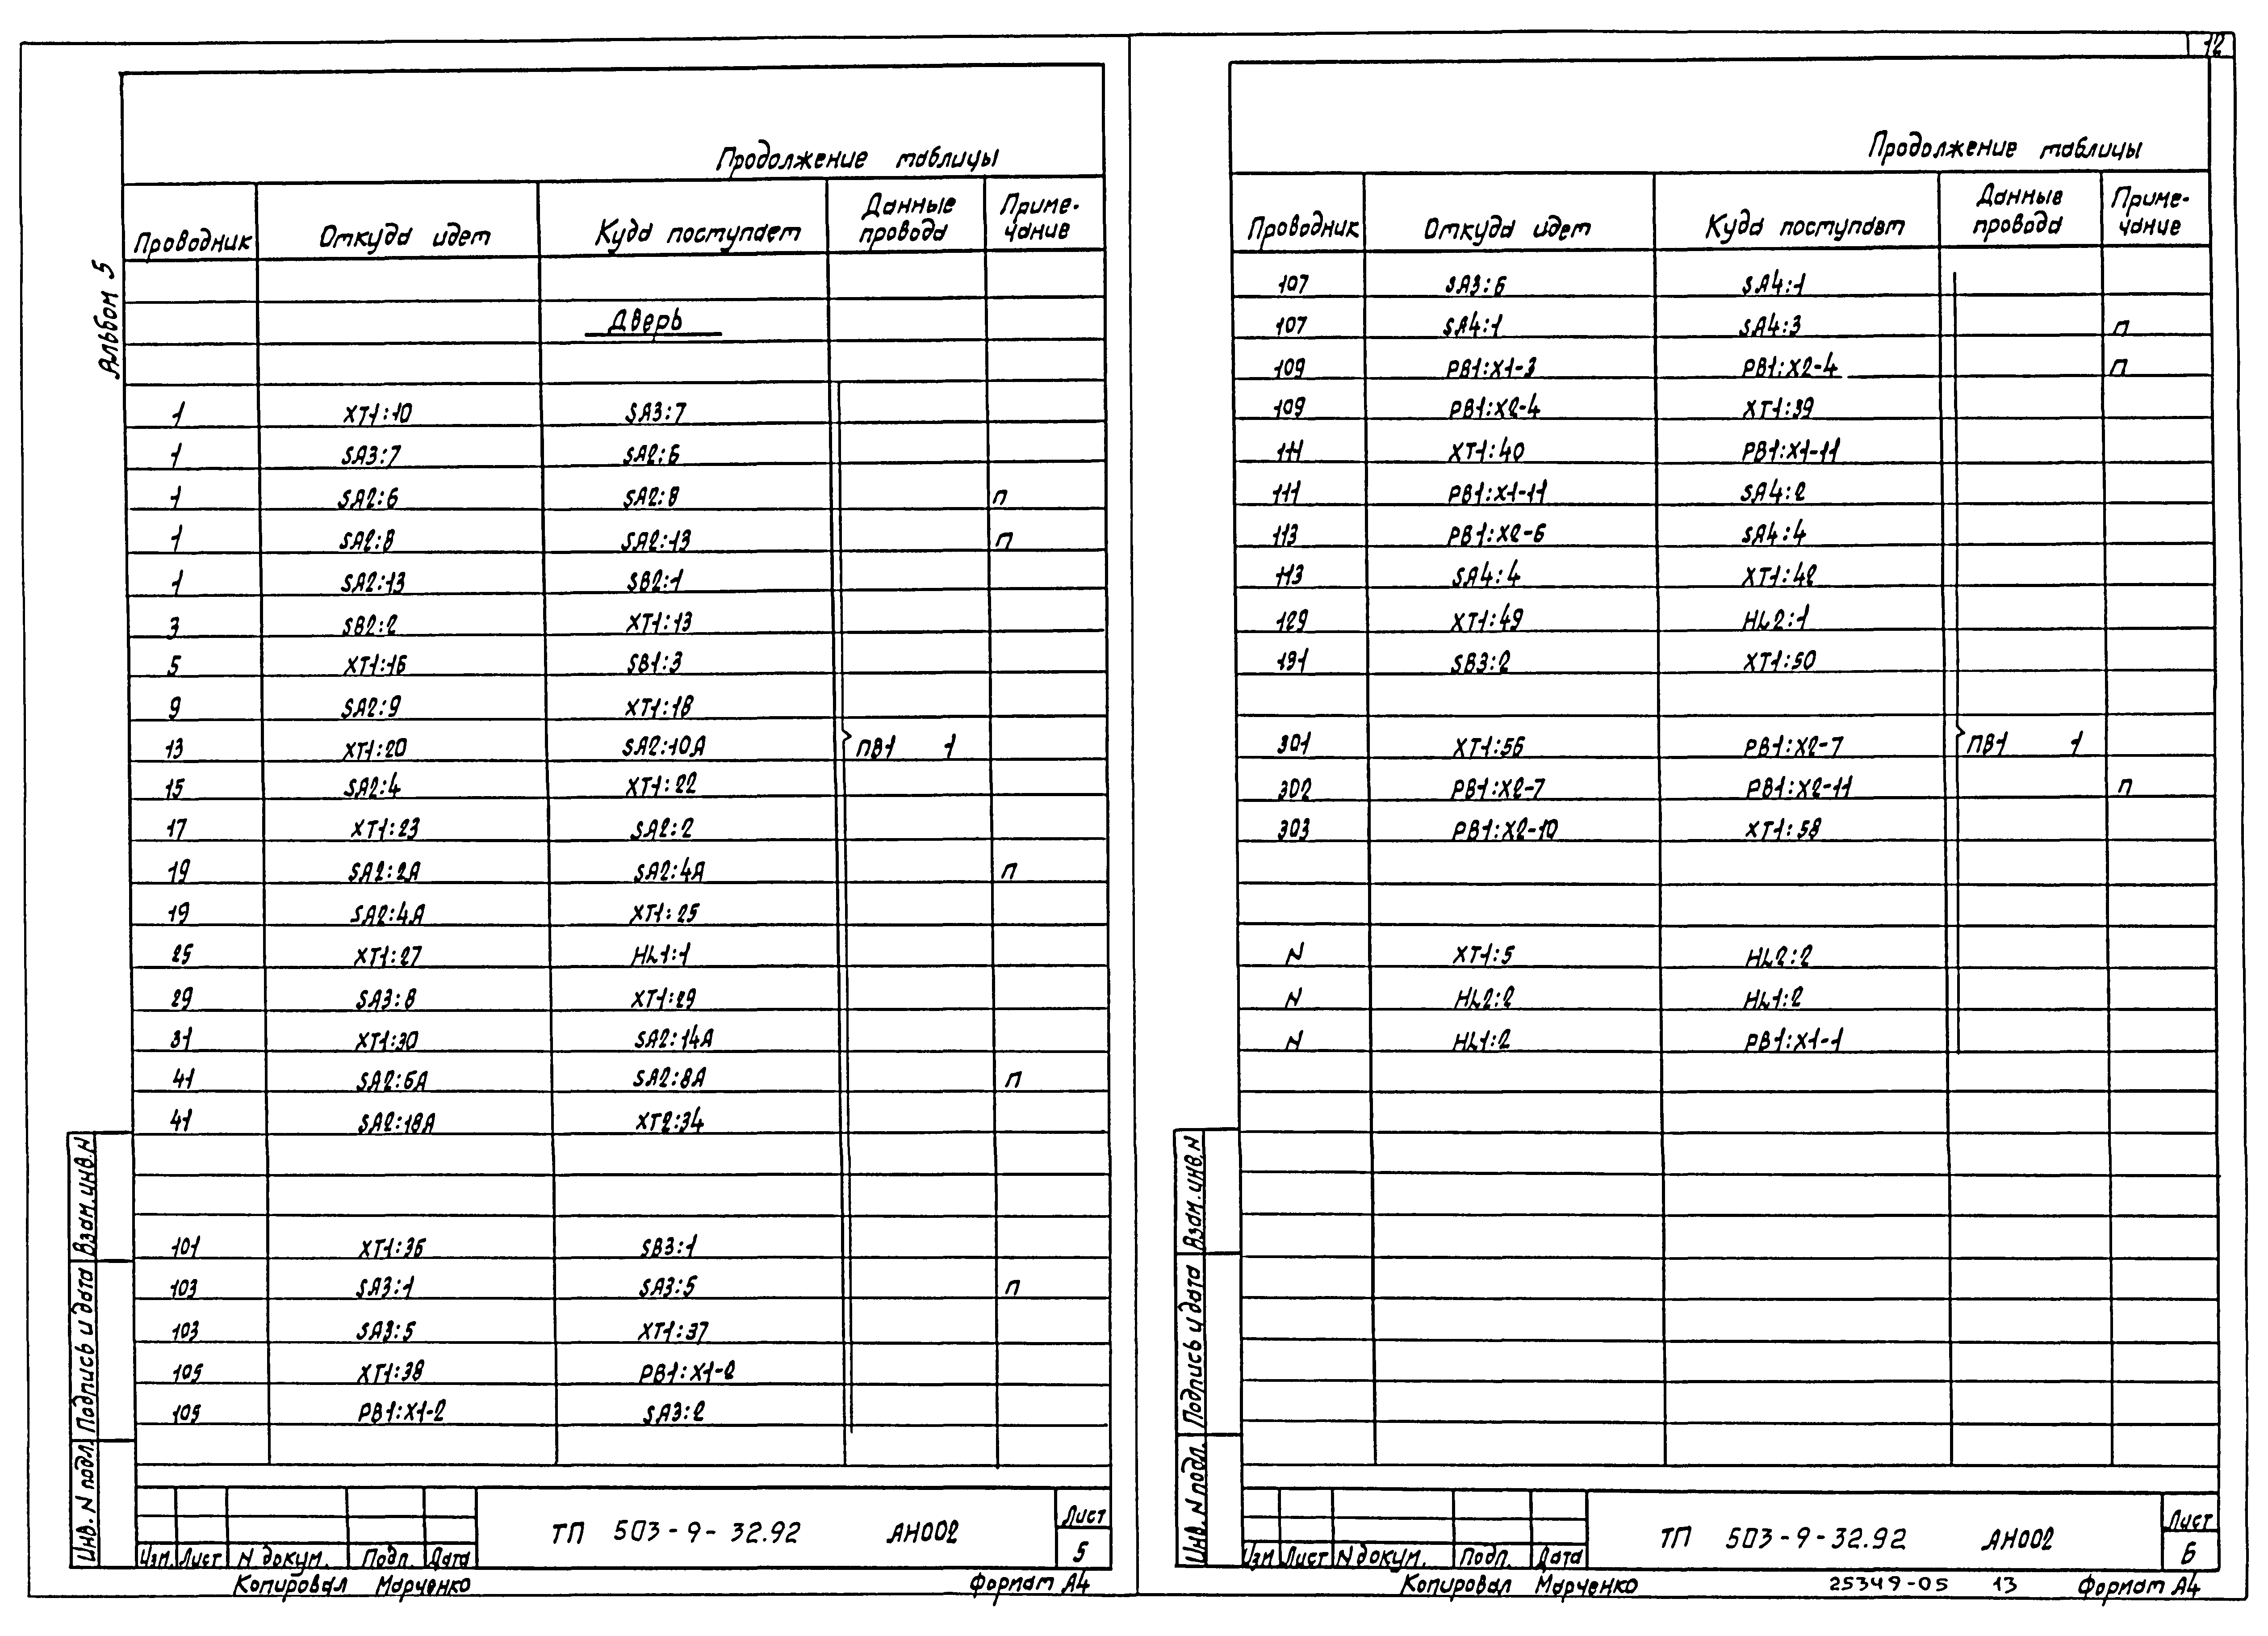 12
Альбом 5
Продолжение таблицы
Проводник Откуда идет Куда поступает Данные провода Приме-чание
Дверь
1 XT1:10 SA3:7
1 SA3:7 SA2:6
1 SA2:6 SA2:8 П
1 SA2:8 SA2:13 П
1 SA2:13 SB2:1
3 SB2:2 XT1:13
5 XT1:16 SB1:3
9 SA2:9 XT1:18
13 XT1:20 SA2:10A ПВ1 1
15 SA2:4 XT1:22
17 XT1:23 SA2:2
19 SA2:2A SA2:4A П
19 SA2:4A XT1:25
25 XT1:27 HL1:1
29 SA3:8 XT1:29
31 XT1:30 SA2:14A
41 SA2:6A SA2:8A П
41 SA2:18A XT2:34
101 XT1:36 SB3:1
103 SA3:1 SA3:5 П
103 SA3:5 XT1:37
105 XT1:38 PB1:X1-2
105 PB1:X1-2 SA3:2
Инв. N подл. Подпись и дата Взам. инв. N
Изм. Лист N докум. Подп. Дата
ТП 503-9-32.92 АН002
Лист
5
Копировал Марченко Формат А4
Продолжение таблицы
Проводник Откуда идет Куда поступает Данные провода Приме-чание
107 SA3:6 SA4:1
107 SA4:1 SA4:3 П
109 PB1:X1-3 PB1:X2-4 П
109 PB1:X2-4 XT1:39
111 XT1:40 PB1:X1-11
111 PB1:X1-11 SA4:2
113 PB1:X2-6 SA4:4
113 SA4:4 XT1:42
129 XT1:49 HL2:1
191 SB3:2 XT1:50
301 XT1:56 PB1:X2-7 ПВ1 1
302 PB1:X2-7 PB1:X2-11 П
303 PB1:X2-10 XT1:58
N XT1:5 HL2:2
N HL2:2 HL1:2
N HL1:2 PB1:X1-1
Инв. N подл. Подпись и дата Взам. инв. N
Изм Лист N докум. Подп. Дата
ТП 503-9-32.92 АН002
Лист
6
Копировал Марченко 25349-05 13 Формат А4